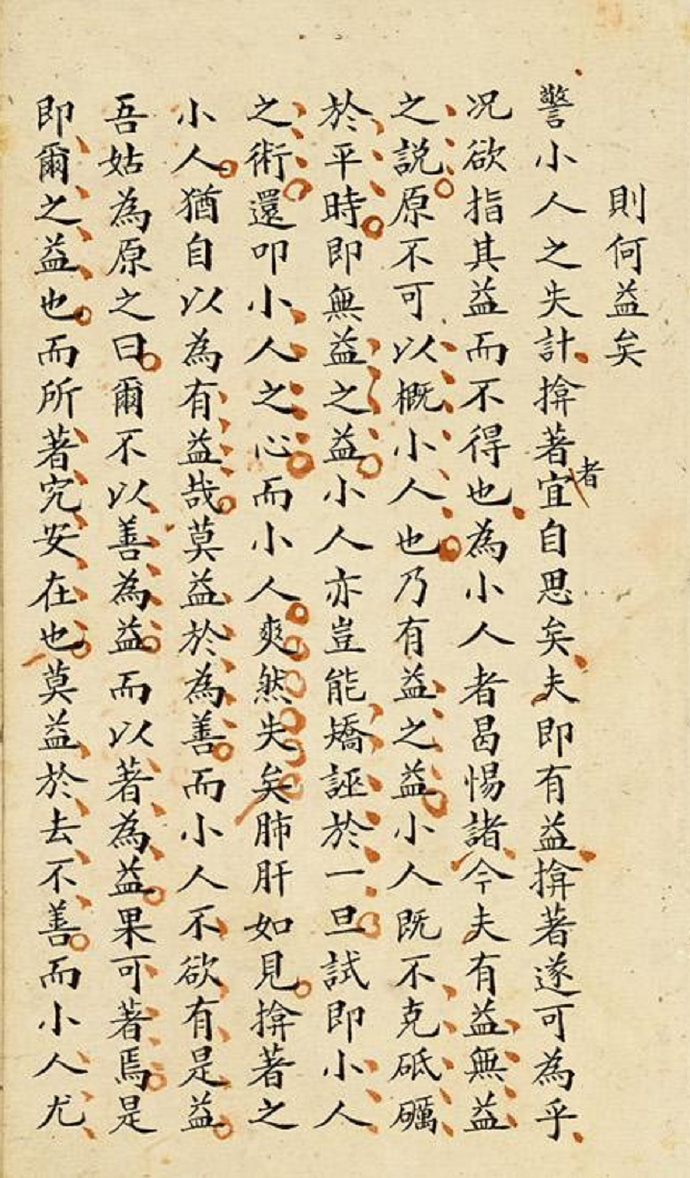 則何益矣
警小人之失計揜著宜者自思矣夫即有益揜著遂可為乎
况欲指其益而不得也為小人者曷惕諸今夫有益無益
之説原不可以概小人也乃有益之益小人既不克砥礪
於平時即無益之益小人亦豈能矯誣於一旦試即小人
之術還叩小人之心而小人爽然失矣肺肝如見揜著之
小人猶自以為有益哉莫益於為善而小人不欲有是益
吾姑為原之曰爾不以善為益而以著為益果可著焉是
即爾之益也而所著究安在也莫益於去不善而小人尤